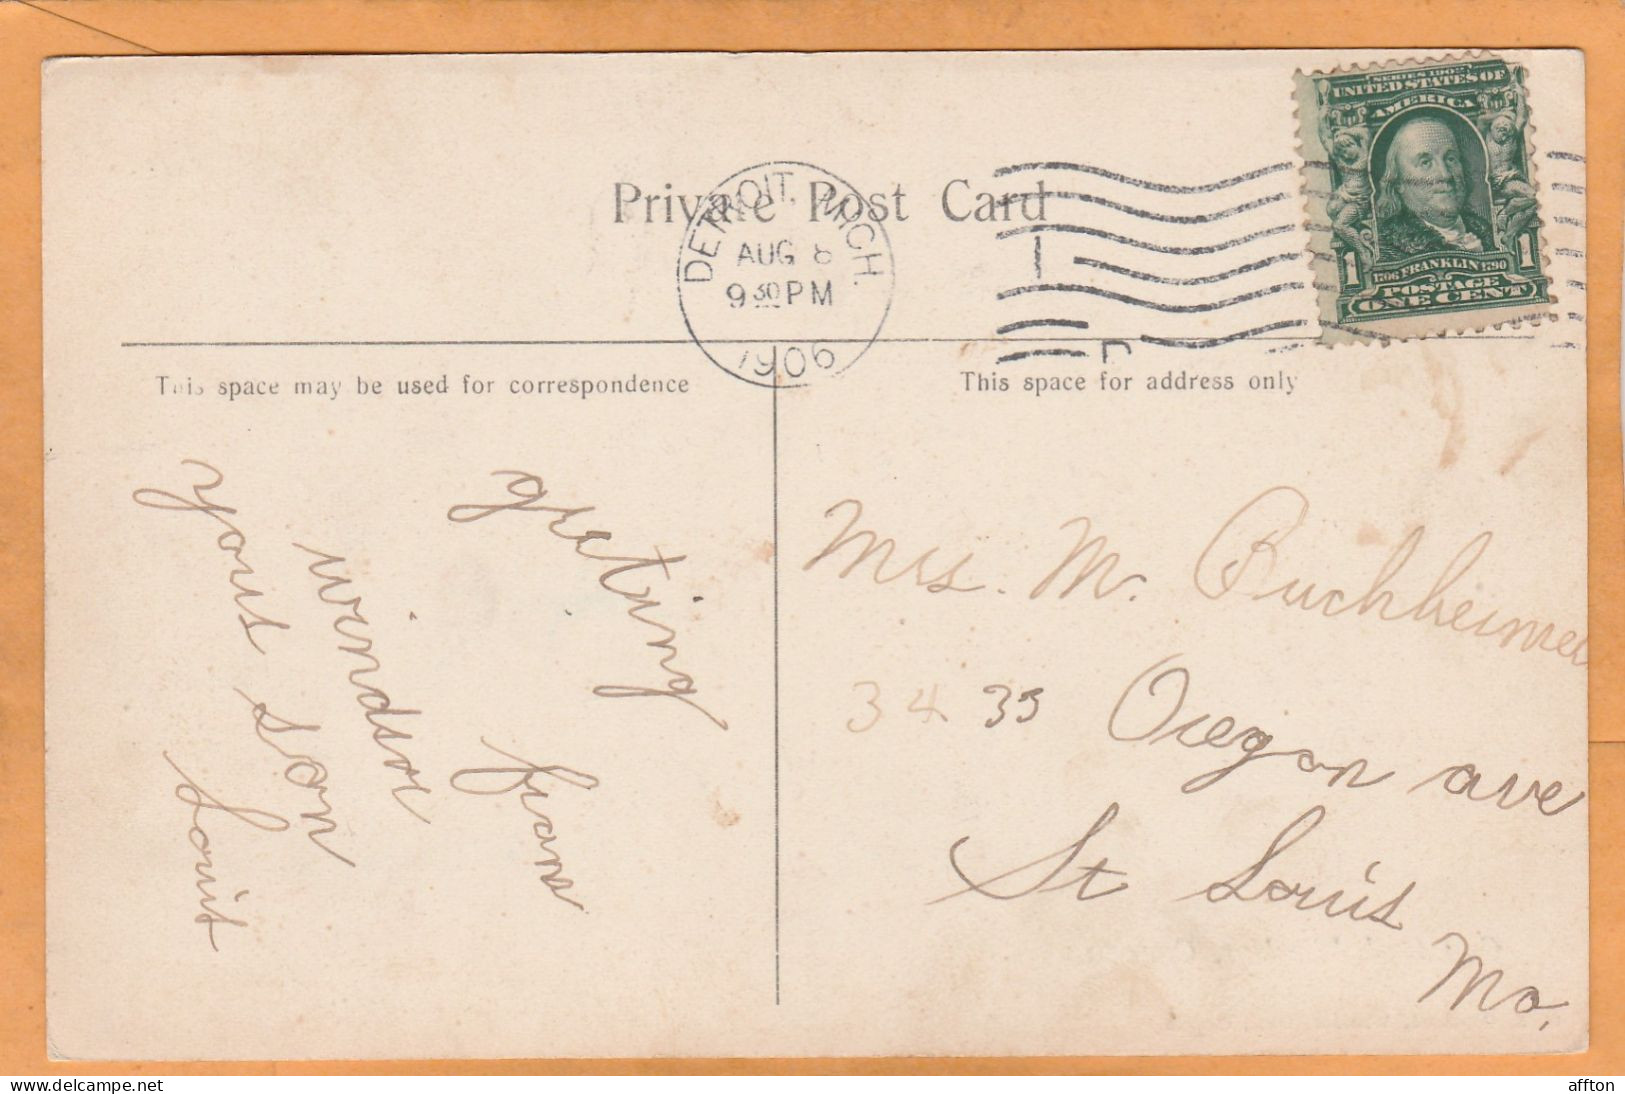 Private Post Card
DETROIT, MICH.
AUG 8
9 30 PM
1906
SERIES 1902
UNITED STATES OF
AMERICA
1706 FRANKLIN 1790
1 1
POSTAGE
ONE CENT
D
This space may be used for correspondence
greeting
from
windsor
your son
Louis
This space for address only
Mrs. M. Buchheimer
3435 Oregon ave
St Louis
Mo.
affton